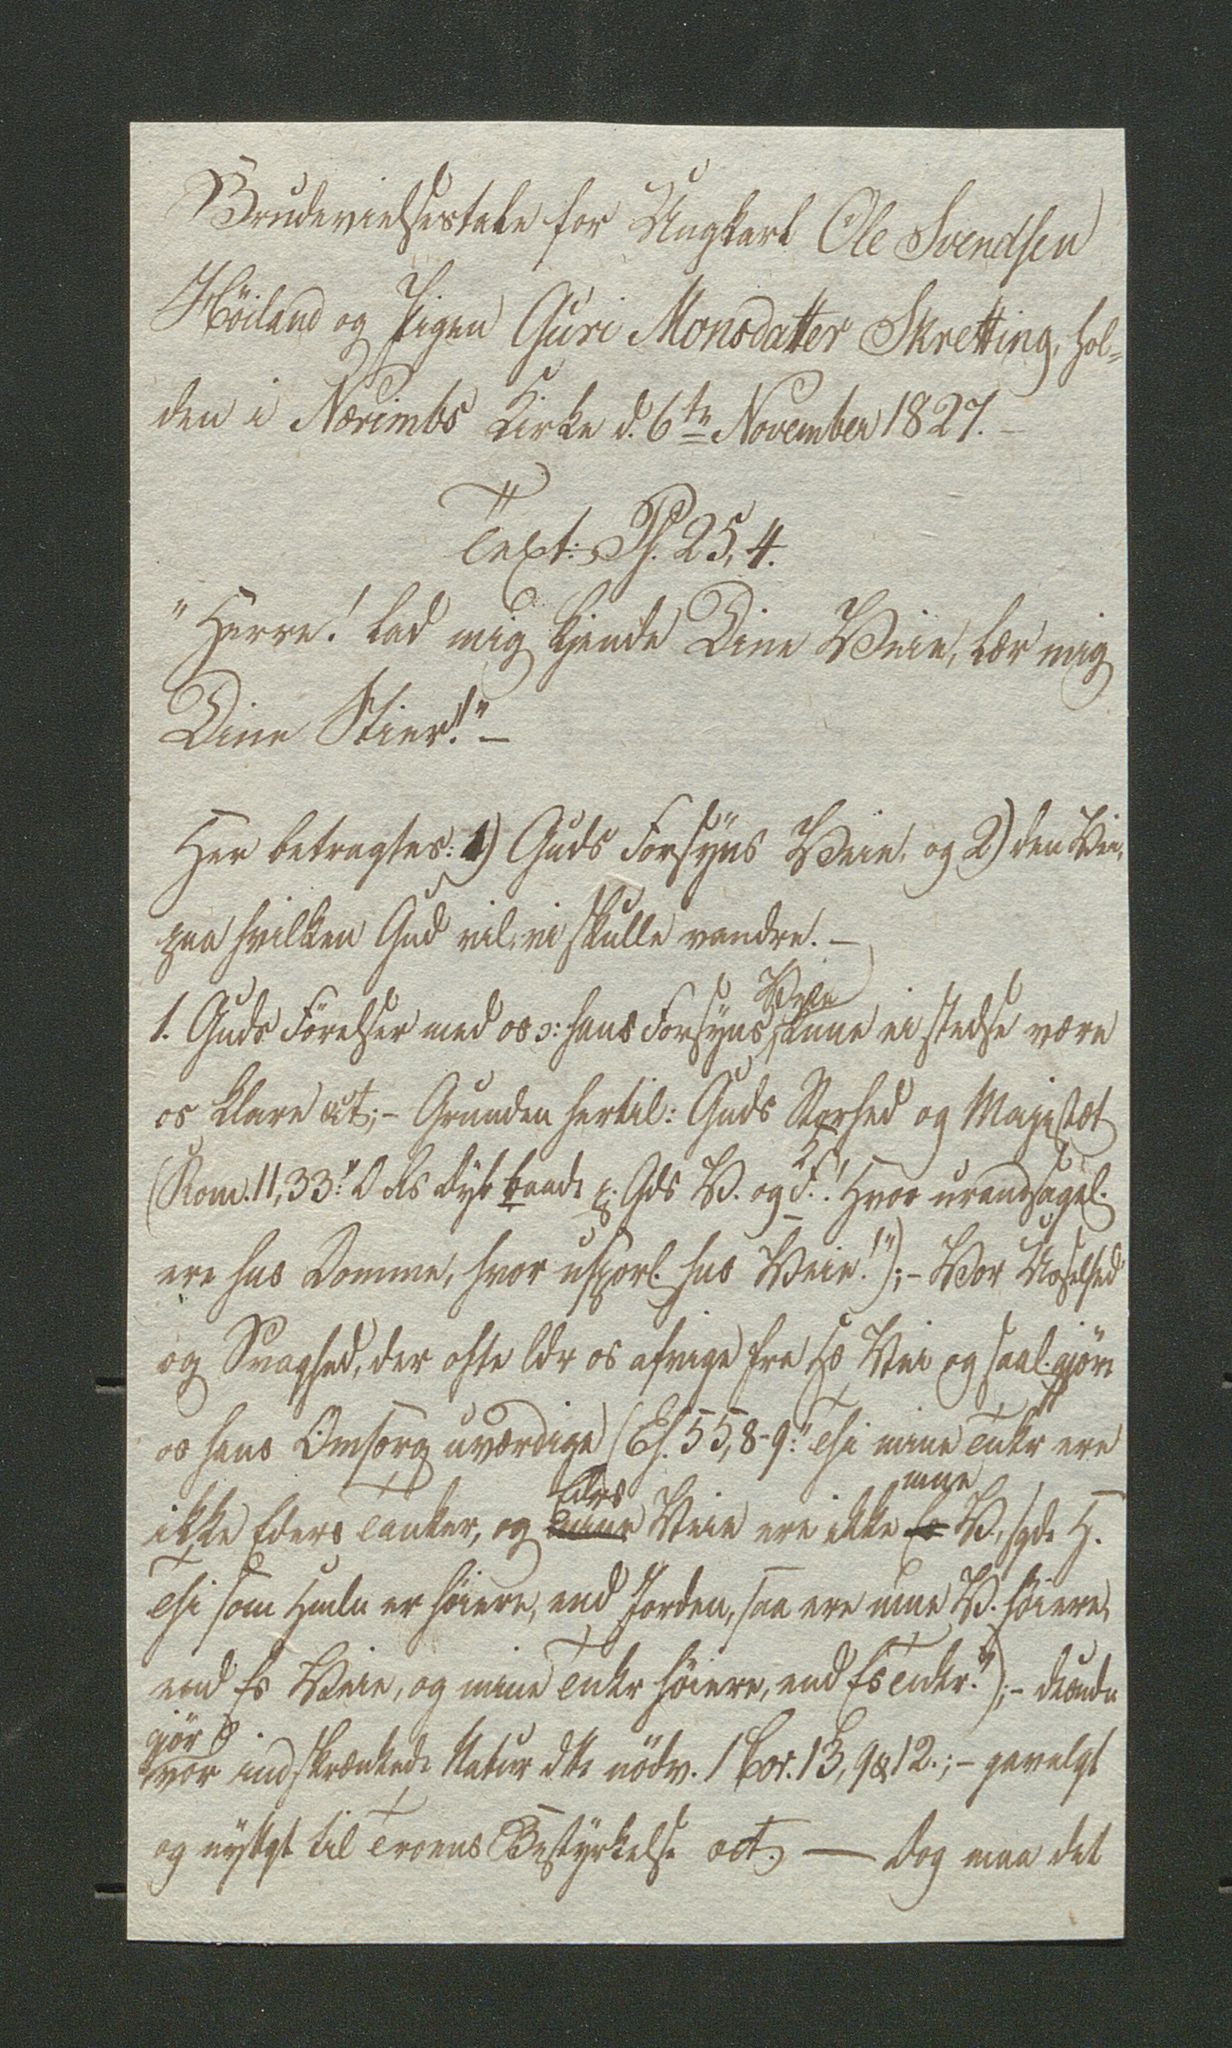 Brudevielsestale for Ungkarl Ole Svendsen
Höiland og Pigen Guri Monsdatter Skretting, hol-
den i Nærimbs Kirke d. 6te November 1827. –
Text: Ps. 25, 4.
"Herre! lad mig kjende Dine Veie, lær mig
Dine Stier!" –
Her betragtes: 1) Guds Forsÿns Veie, og 2) den Vei,
paa hvilken Gud vil, vi skulle vandre. –
1. Guds Förelser med os ɔ: hans Forsÿns Veie kunne ei stedse være
os klare &ct; – Grunden hertil: Guds Storhed og Majestæt
(Rom. 11, 33: "O Rs Dyb baade p. Gds V. og K.! Hvor urandsagel.
ere hns Domme, hvor usporl. hns Veie!"); – Vor Uselhed
og Svaghed, der ofte ldr os afvige fra Hs Vei og saal. gjöre
os hans Omsorg uværdige (Es. 55, 8-9: "Thi mine Tnkr ere
ikke Eders Tanker, og Edrs Veie ere ikke mne V., sgde H.
Thi som Hmln er höiere, end Jorden, saa ere mne V. höiere,
end Es Veie, og mine Tnkr höiere, end Es Tnkr."); – desudn
gjör vor indskrænkede Natur dtte nödv. 1 Cor. 13, 9 & 12.; – gavnlgt
og nyttgt til Troens Bestyrkelse &ct. — Dog maa det